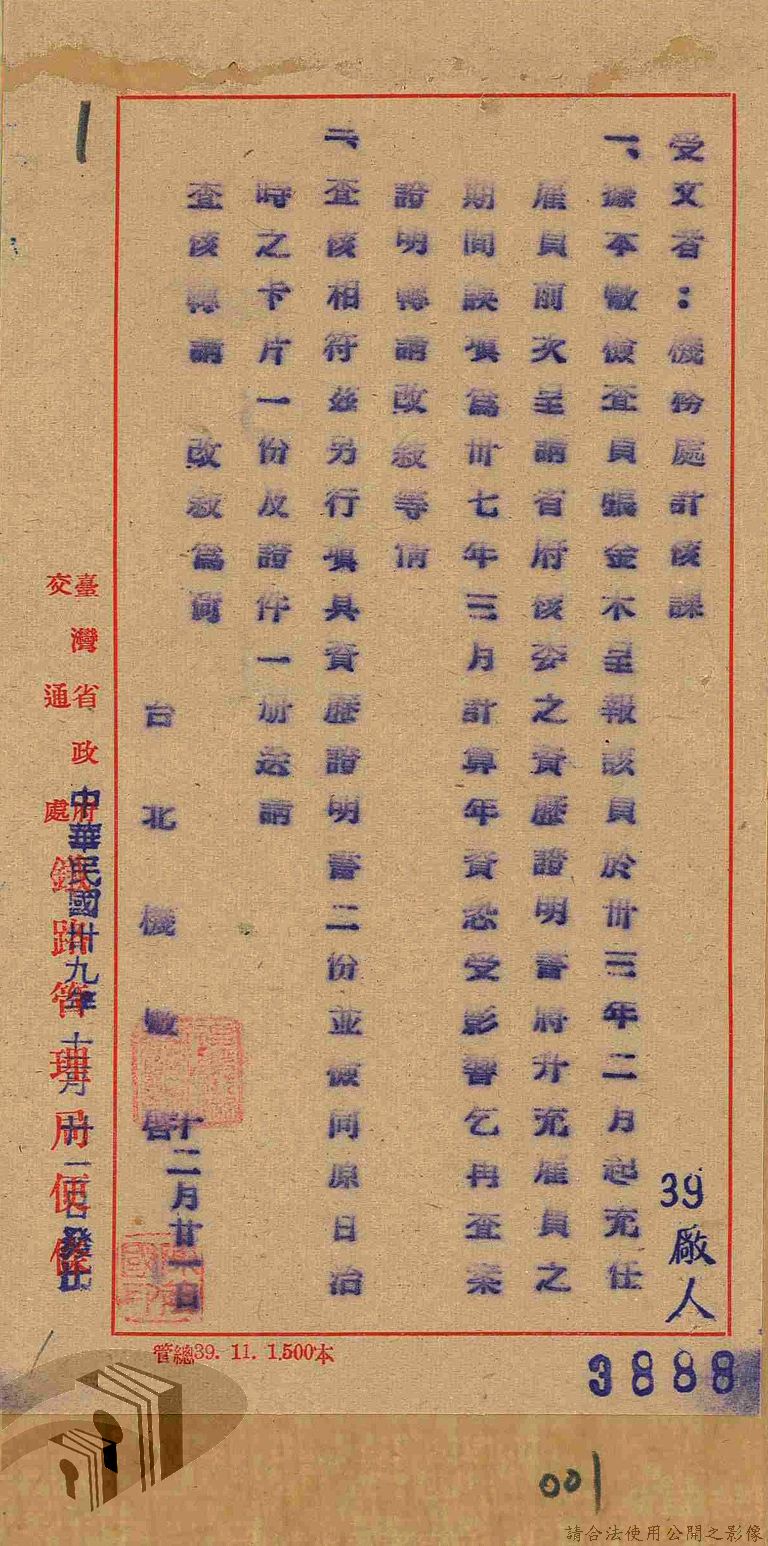 受文者：機務處計核課
一、據本廠檢查員張金木呈報該員於卅三年二月起充任
雇員前次呈請省府核委之資歷證明書將升充雇員之
期間誤填為卅七年三月計算年資恐受影響乞再查案
證明轉請改敍等情
二、查核相符茲另行填具資歷證明書二份並檢同原日治
時之卡片一份及證件一册送請
查核轉請 改敍為荷
台北機廠啓
十二月廿一日
39廠人
3888
臺灣省政府
交通處
鐵路管理局便條
中華民國卅九年十二月廿一日發出
管總39. 11. 1.500本
1
001
請合法使用公開之影像